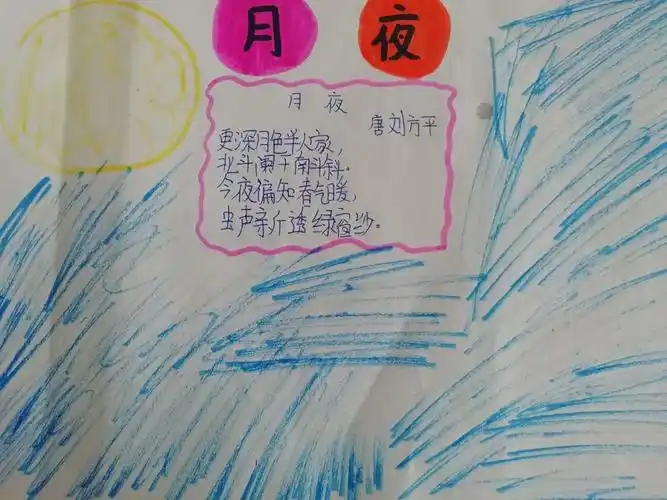 月 夜
月 夜
唐 刘方平
更深月色半人家，
北斗阑干南斗斜.
今夜偏知春气暖，
虫声新透绿窗沙。